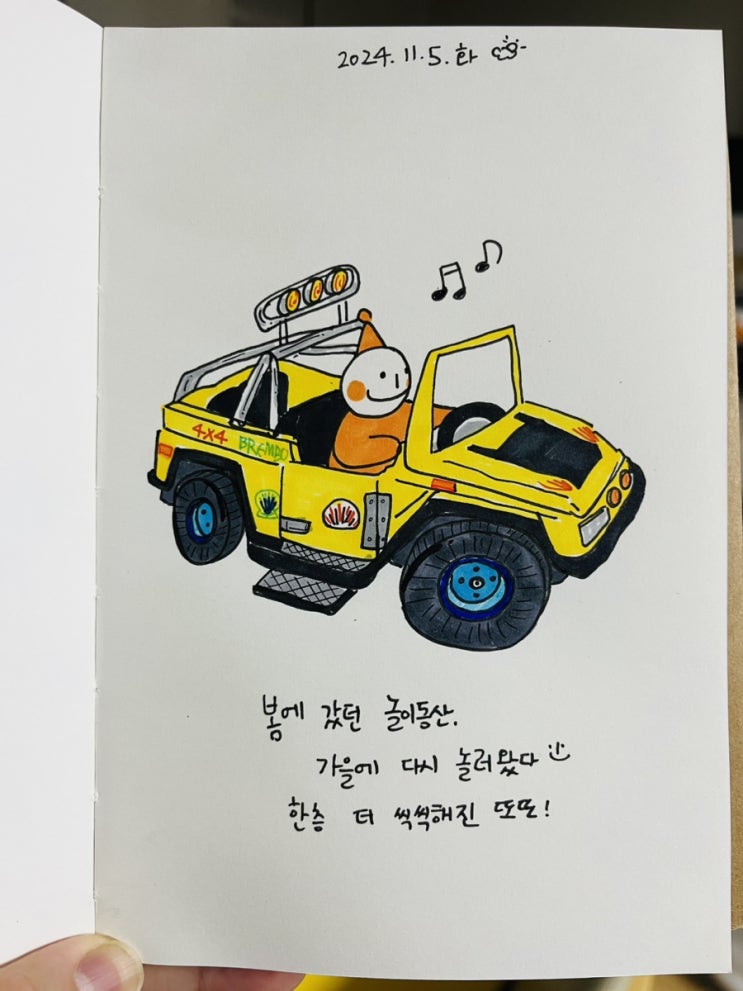 2024.11.5.화
4X4 BREMBO
봄에 갔던 놀이동산.
가을에 다시 놀러왔다
한층 더 씩씩해진 또또!